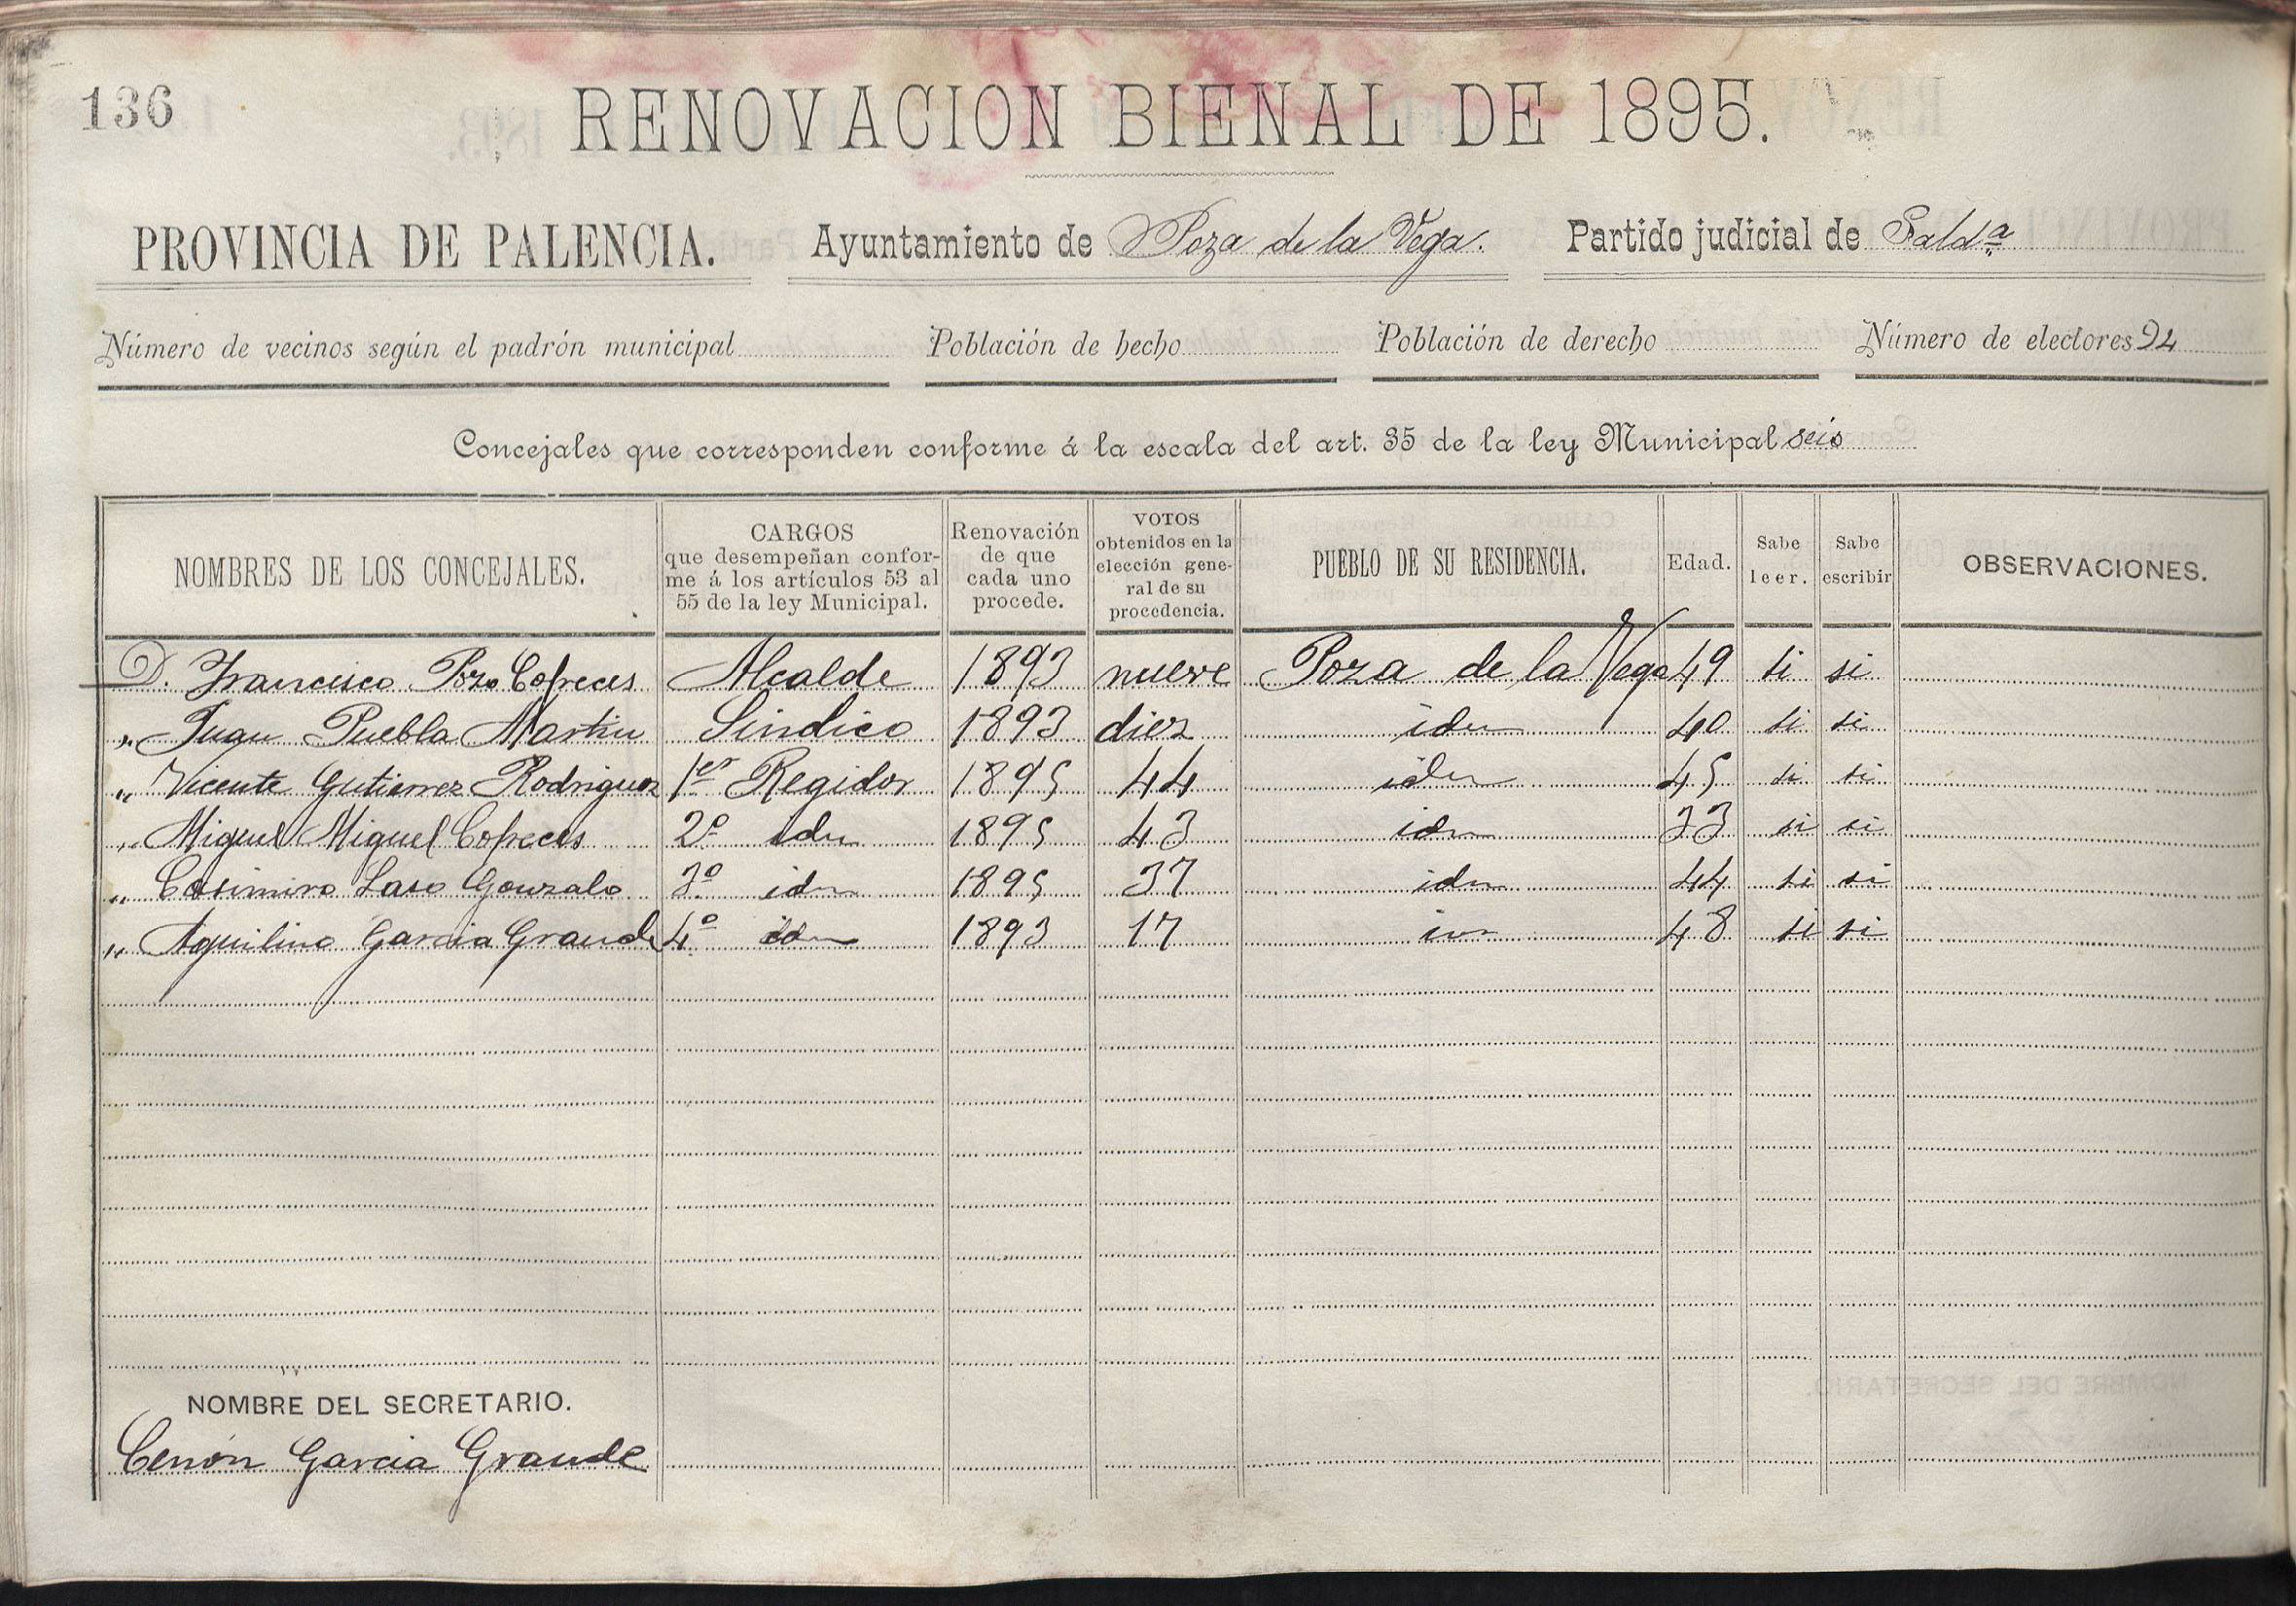 136
RENOVACION BIENAL DE 1895.
PROVINCIA DE PALENCIA. Ayuntamiento de Poza de la Vega. Partido judicial de Saldª
Número de vecinos según el padrón municipal Población de hecho Población de derecho Número de electores 94
Concejales que corresponden conforme á la escala del art. 35 de la ley Municipal seis
NOMBRES DE LOS CONCEJALES. CARGOS que desempeñan confor- me á los artículos 53 al 55 de la ley Municipal. Renovación de que cada uno procede. VOTOS obtenidos en la elección gene- ral de su procedencia. PUEBLO DE SU RESIDENCIA. Edad. Sabe leer. Sabe escribir OBSERVACIONES.
D. Francisco Pozo Cofreces Alcalde 1893 nueve Poza de la Vega 49 si si
„ Juan Puebla Martin Sindico 1893 diez idm 40 si si
„ Vicente Gutierrez Rodriguez 1er Regidor 1895 44 idm 45 si si
„ Miguel Miguel Cofreces 2º idm 1895 43 idm 33 si si
„ Casimiro Laso Gonzalo 3º idm 1895 37 idm 44 si si
„ Aquilino Garcia Grande 4º idm 1893 17 48 si si
NOMBRE DEL SECRETARIO.
Cenón Garcia Grande